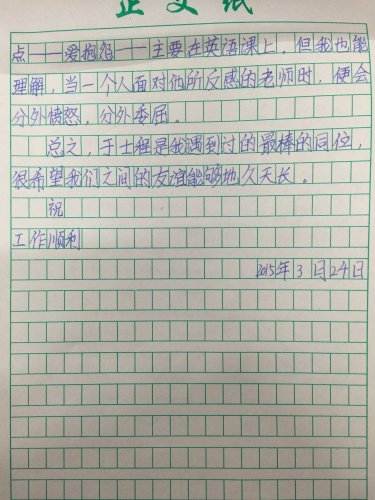 正文纸
点——爱抱怨——主要在英语课上。但我也能
理解,当一个人面对他所反感的老师时,便会
分外愤怒,分外委屈。
总之,于士程是我遇到过的最棒的同位,
很希望我们之间的友谊能够地久天长。
祝
工作顺利
2015年3月24日